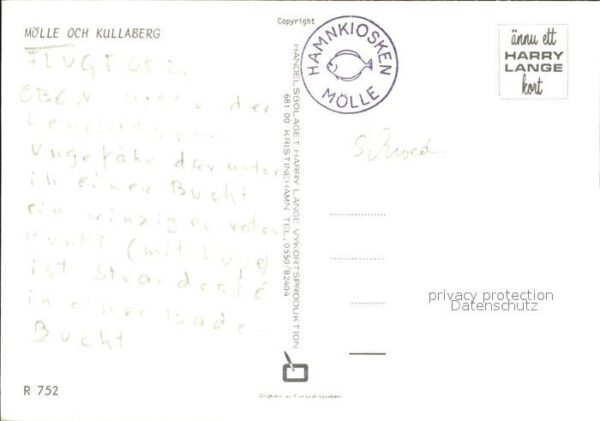 MÖLLE OCH KULLABERG
Copyright
HAMNKIOSKEN
MÖLLE
ännu ett
HARRY
LANGE
kort
OBEN der
Ungefähr darunter
in einer Bucht
ein winziger roter
Punkt (mit Lupe)
ist Strandcafé
in einer Bade
Bucht
HANDELSBOLAGET HARRY LANGE VYKORTSPRODUKTION
681 00 KRISTINEHAMN TEL. 0550/82404
privacy protection
Datenschutz
R 752